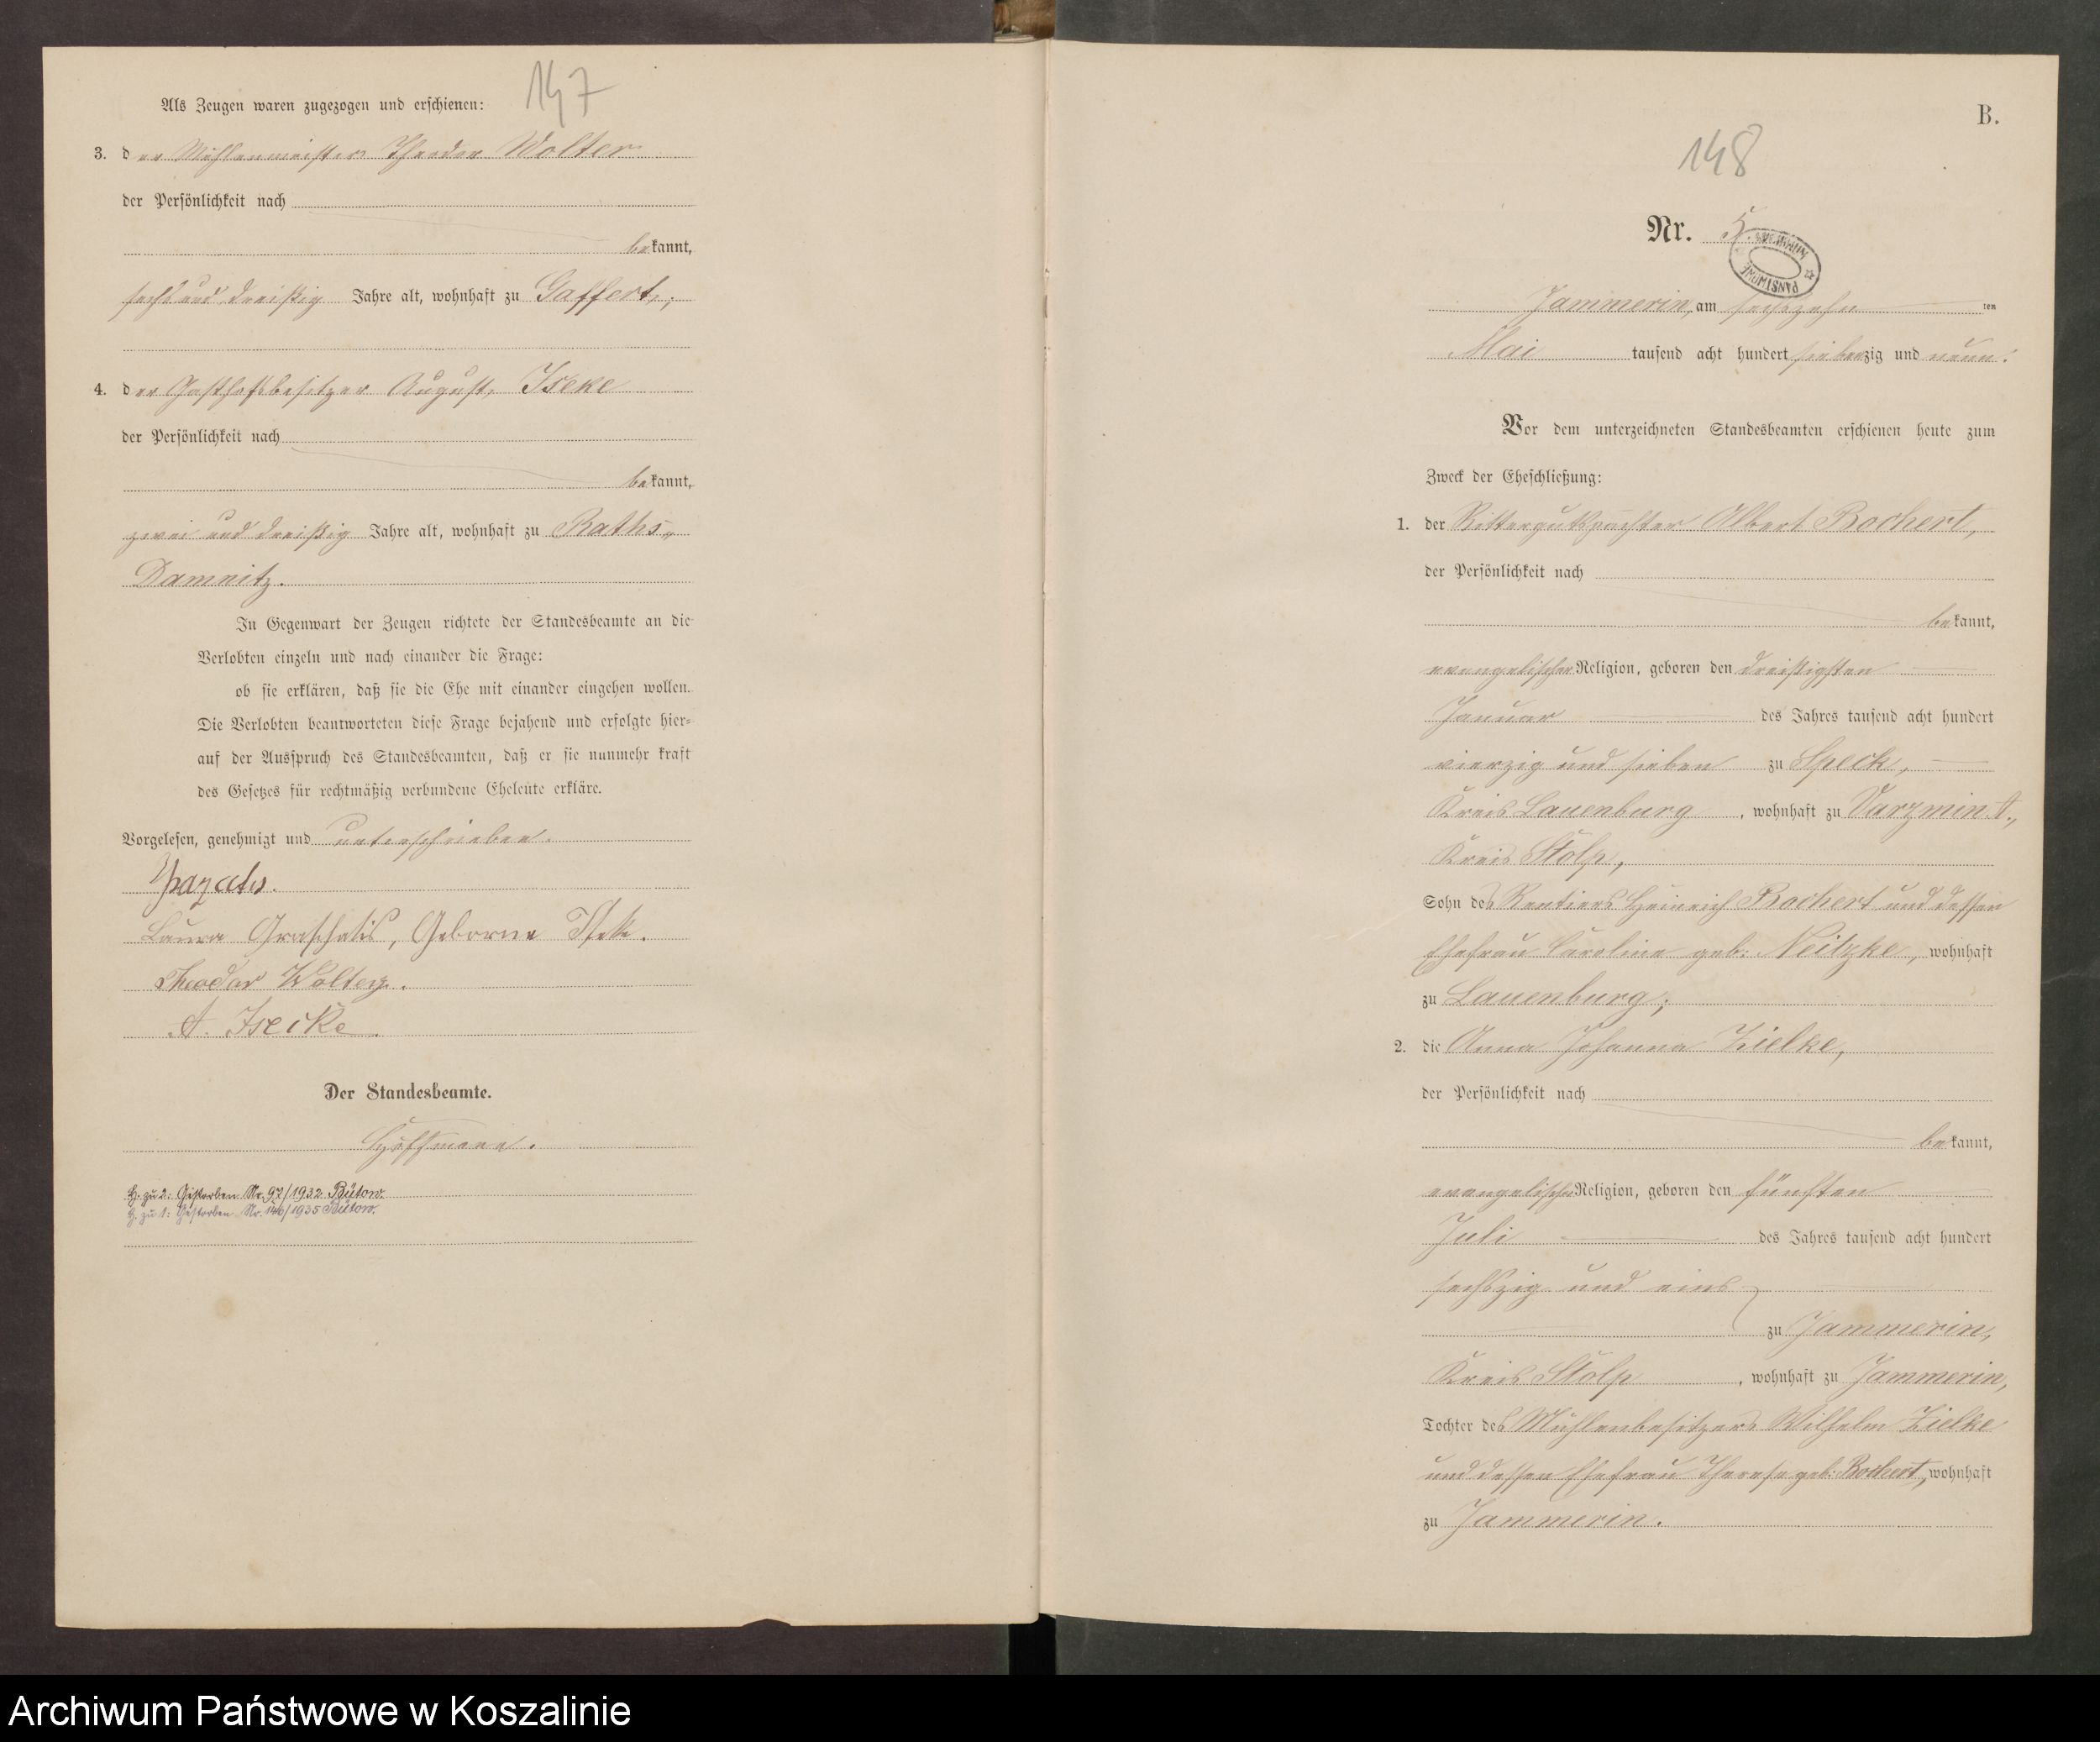 147
Als Zeugen waren zugezogen und erschienen:
3. der Mühlenmeister Theodor Wolter
der Persönlichkeit nach
bekannt,
sechs und dreißig Jahre alt, wohnhaft zu Gaffert,;
4. der Gasthofsbesitzer August Iseke
der Persönlichkeit nach
bekannt,
zwei und dreißig Jahre alt, wohnhaft zu Raths-
Damnitz.
In Gegenwart der Zeugen richtete der Standesbeamte an die
Verlobten einzeln und nach einander die Frage:
ob sie erklären, daß sie die Ehe mit einander eingehen wollen.
Die Verlobten beantworteten diese Frage bejahend und erfolgte hier-
auf der Ausspruch des Standesbeamten, daß er sie nunmehr kraft
des Gesetzes für rechtmäßig verbundene Eheleute erkläre.
Vorgelesen, genehmigt und unterschrieben.
Laura Geborne
Theodor Wolter.
A. Isecke.
Der Standesbeamte.
Hoffmann.
H. zu 2: Gestorben Nr. 97/1932 Bütow.
H. zu 1: Gestorben Nr. 146/1935 Bütow.
B.
148
Nr. 5.
Jammerin, am sechszehnten
Mai tausend acht hundert siebenzig und neun.
Vor dem unterzeichneten Standesbeamten erschienen heute zum
Zweck der Eheschließung:
1. der Rittergutspächter Albert Bochert,
der Persönlichkeit nach
bekannt,
evangelischer Religion, geboren den dreißigsten
Januar des Jahres tausend acht hundert
vierzig und sieben zu Speck,
Kreis Lauenburg, wohnhaft zu Varzmin A.,
Kreis Stolp,
Sohn des Rentiers Heinrich Bochert und dessen
Ehefrau Caroline geb: Neitzke, wohnhaft
zu Lauenburg;
2. die Anna Johanna Zielke,
der Persönlichkeit nach
bekannt,
evangelischer Religion, geboren den fünften
Juli des Jahres tausend acht hundert
sechszig und eins
zu Jammerin,
Kreis Stolp, wohnhaft zu Jammerin,
Tochter des Mühlenbesitzers Wilhelm Zielke
und dessen Ehefrau Therese geb: Bochert, wohnhaft
zu Jammerin.
Archiwum Państwowe w Koszalinie